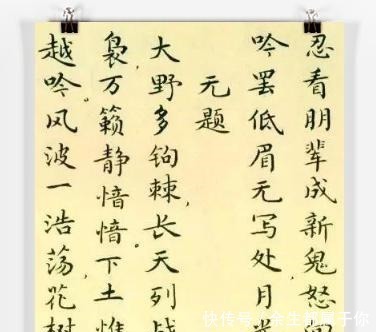 忍看朋辈成新鬼怒
吟罢低眉无写处,月
无题
大野多钩棘,长天列战
袅。万籁静愔愔。下土惟
越吟。风波一浩荡,花树
快传号/余生都属于你